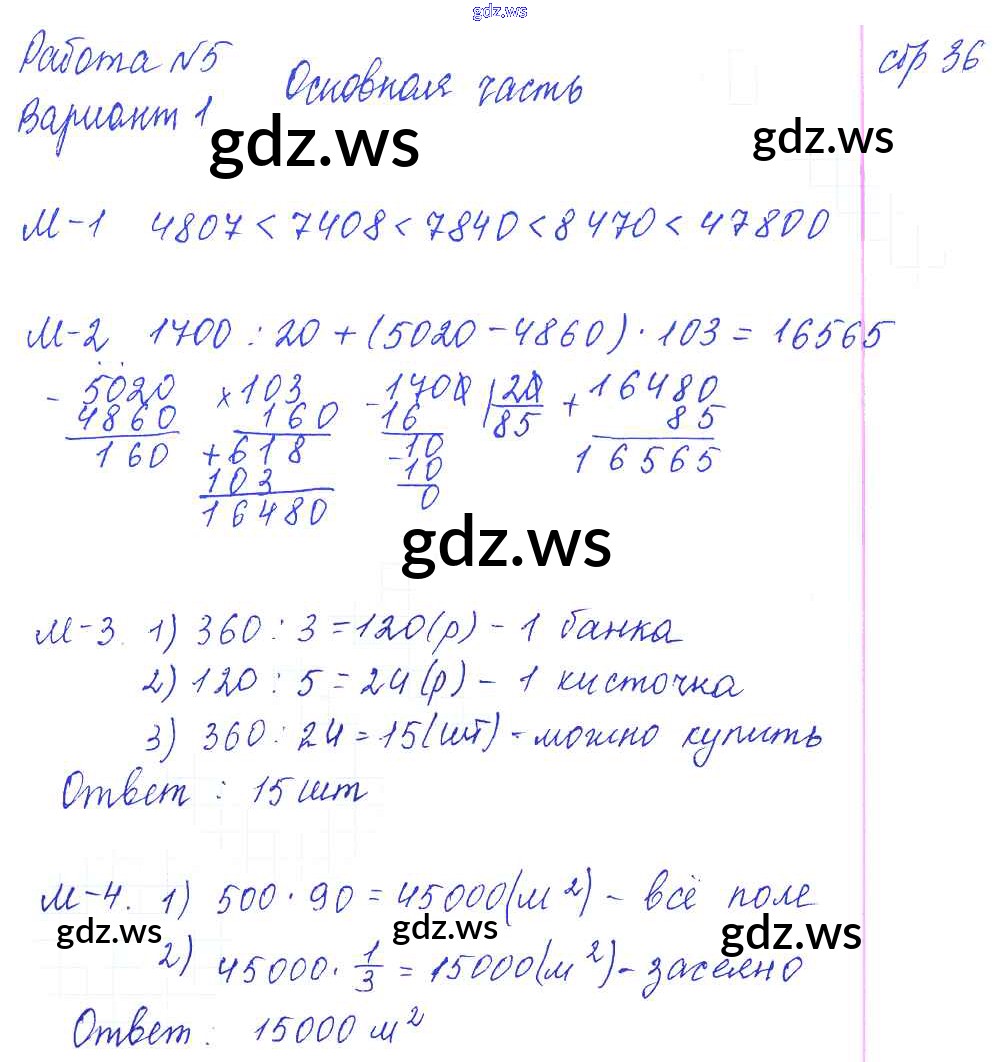 gdz.ws
Работа №5
стр 36
Основная часть
Вариант 1
gdz.ws
gdz.ws
М-1 4807 < 7408 < 7840 < 8470 < 47800
М-2 1700 : 20 + (5020 - 4860) · 103 = 16565
- 5020 × 103 - 1700 | 20 + 16480
4860 160 16 85 85
160 + 618 - 10 16565
103 10
16480 0
gdz.ws
М-3. 1) 360 : 3 = 120 (р) - 1 банка
2) 120 : 5 = 24 (р) - 1 кисточка
3) 360 : 24 = 15 (шт) - можно купить
Ответ : 15 шт
М-4. 1) 500 · 90 = 45000 (м²) - всё поле
gdz.ws gdz.ws gdz.ws
2) 45000 · 1/3 = 15000 (м²) - засеяно
Ответ : 15000 м²